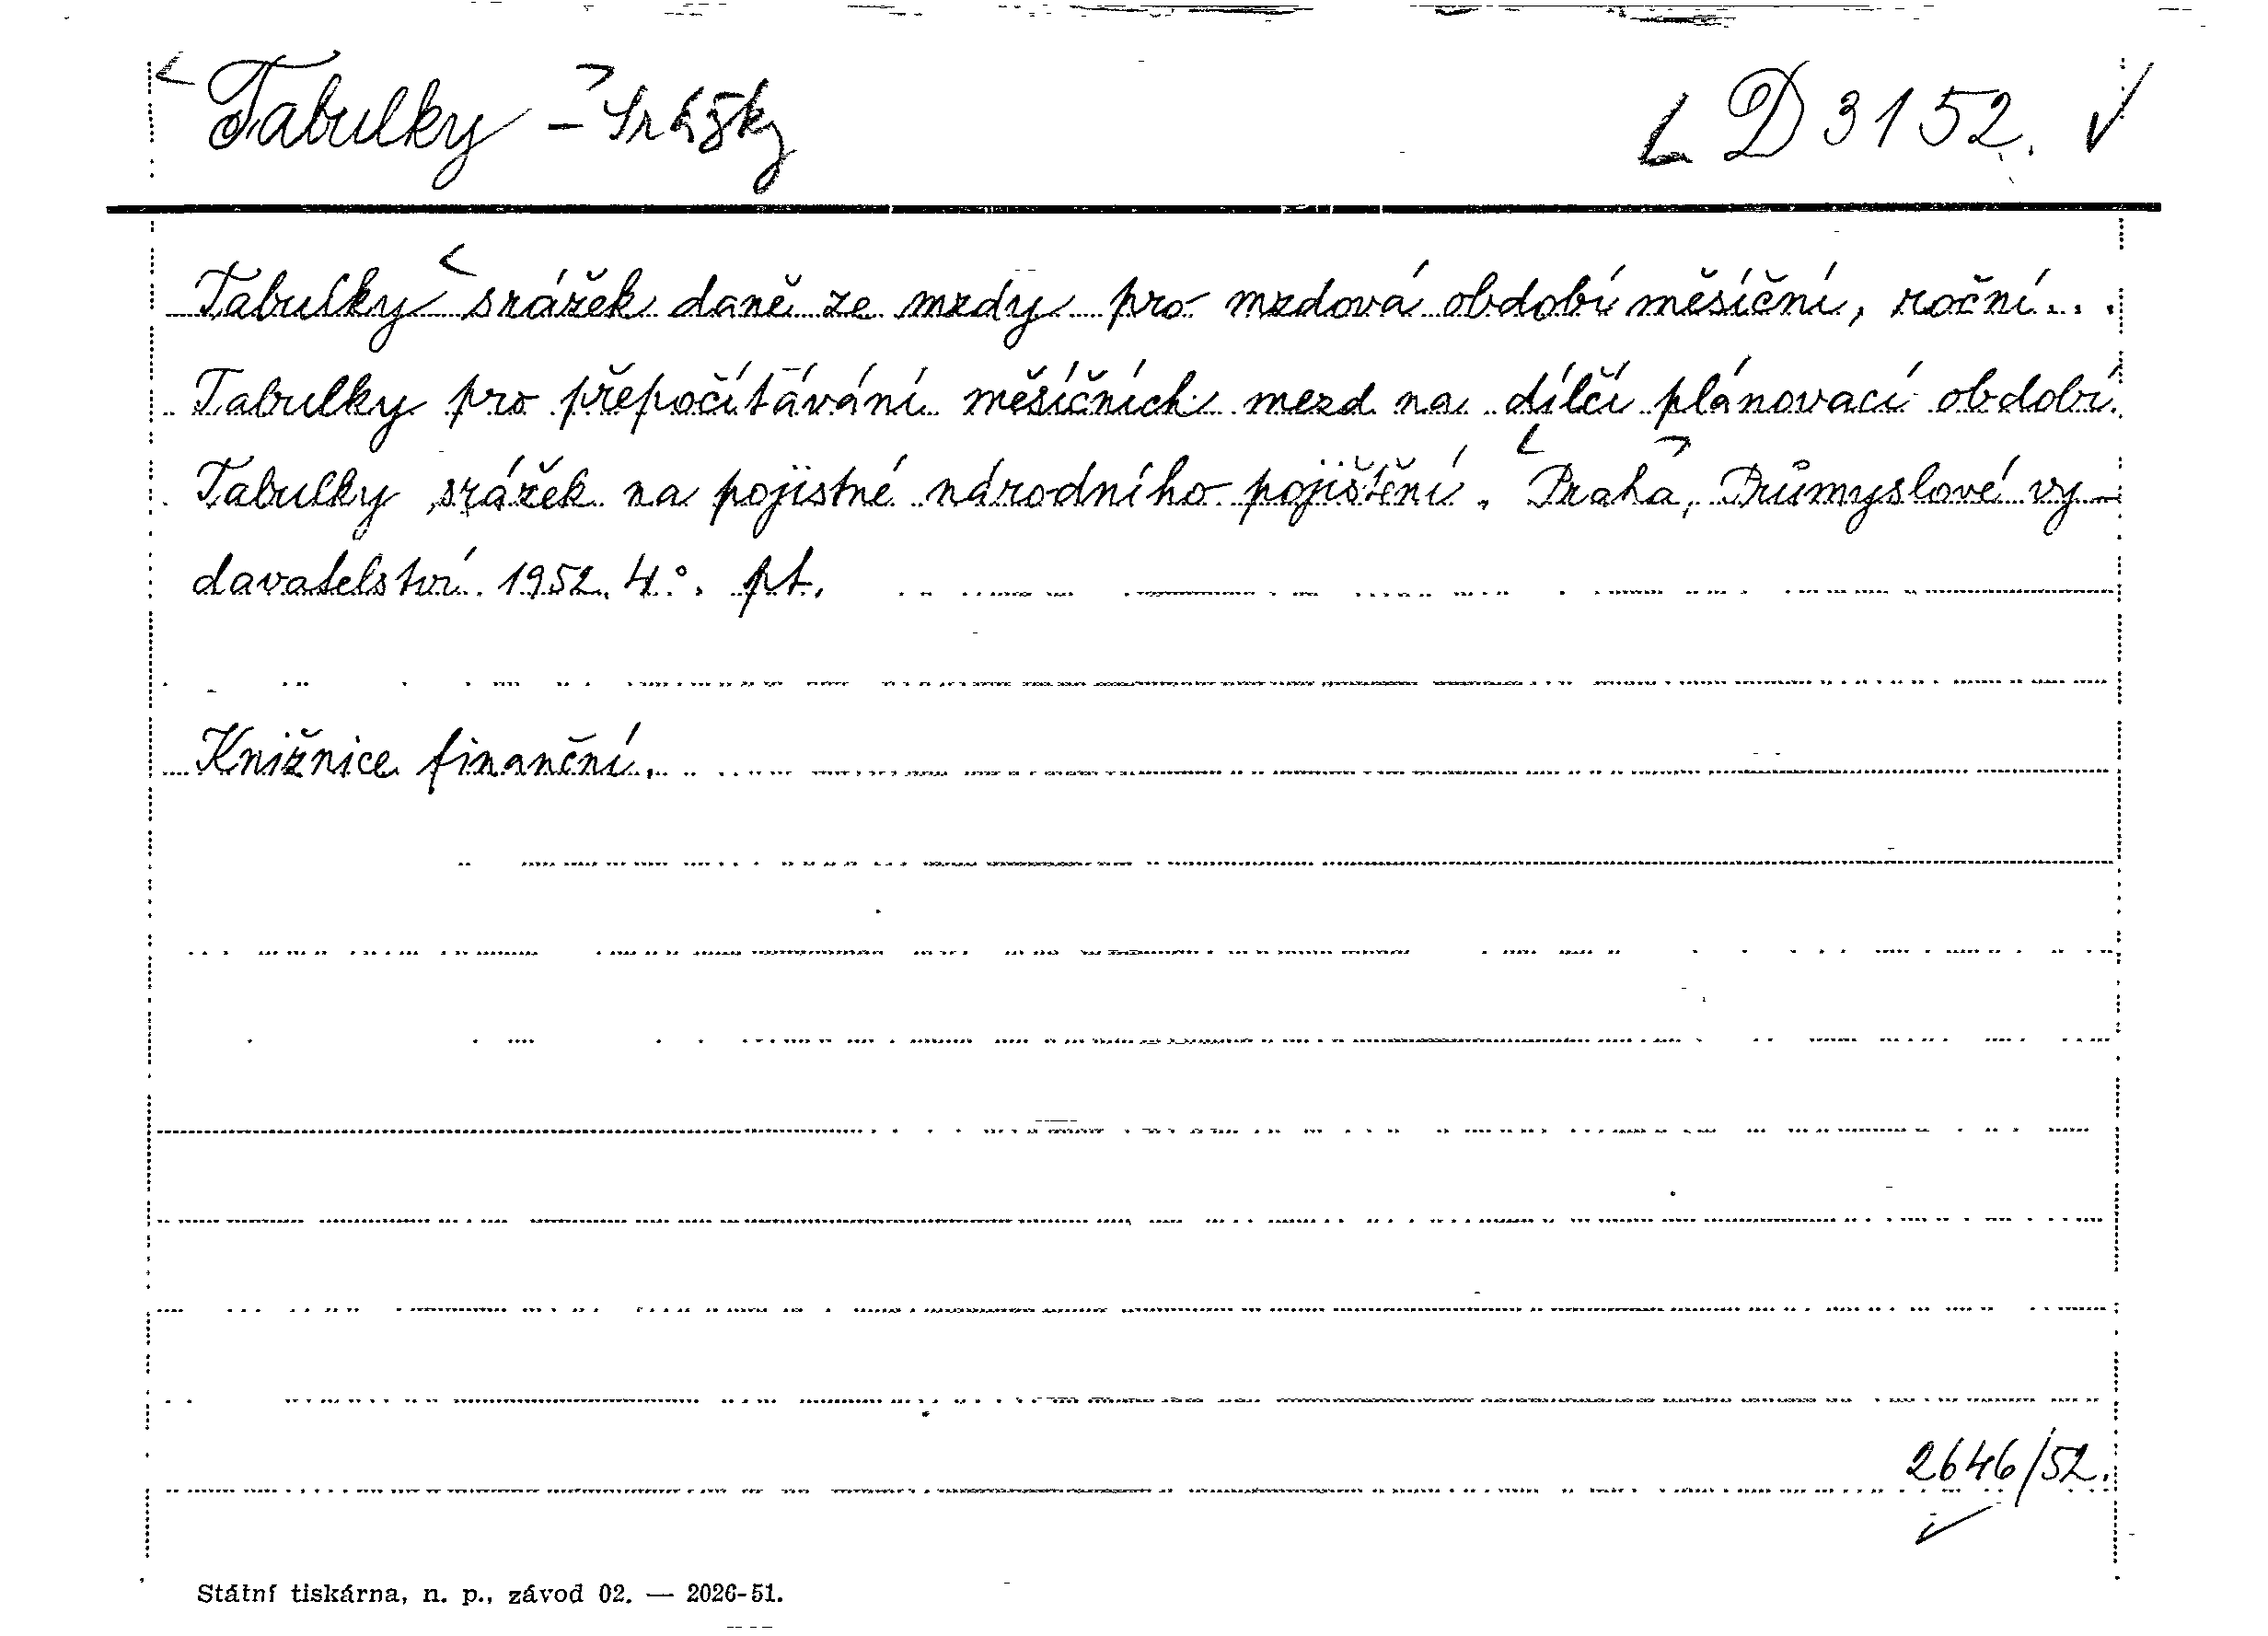 Tabulky - Srážky D 3152.
Tabulky srážek daně ze mzdy pro mzdová období měsíční, roční...
Tabulky pro přepočítávání měsíčních mezd na dílčí plánovací období.
Tabulky srážek na pojistné národního pojištění. Praha, Průmyslové vy-
davatelství 1952. 4°. pt.
Knižnice finanční.
2646/52.
Státní tiskárna, n. p., závod 02. — 2026-51.